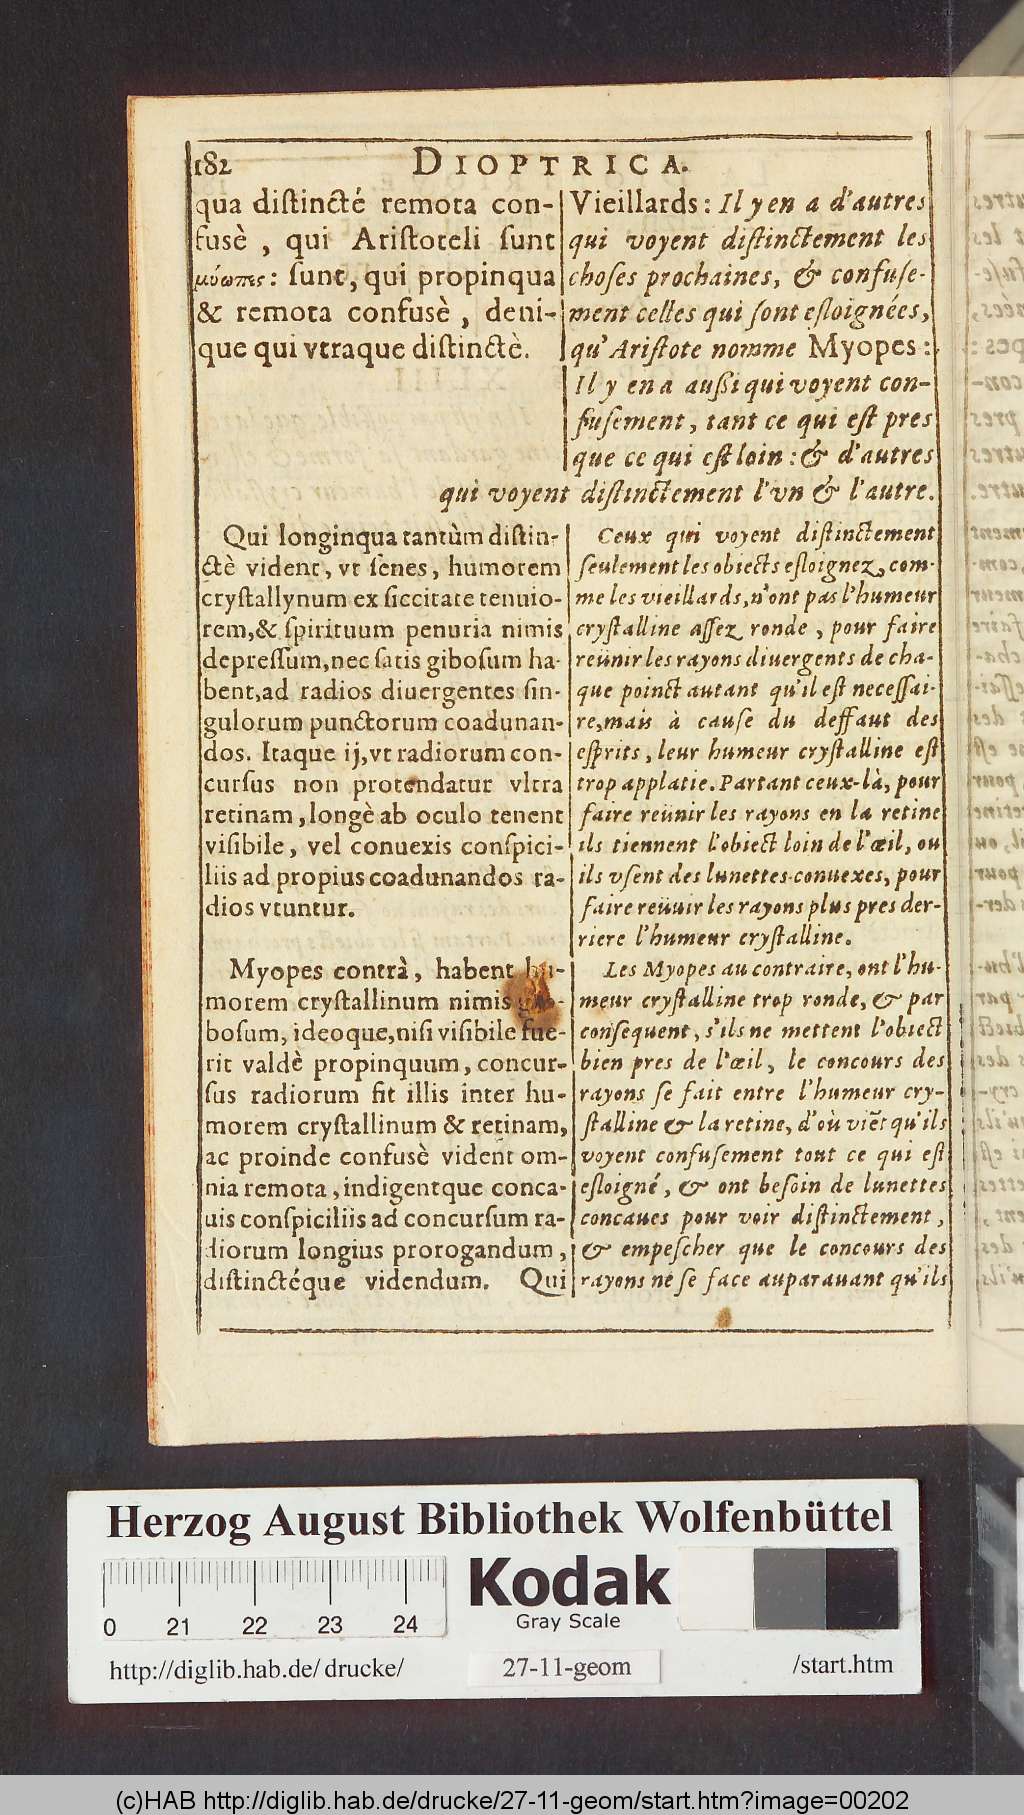 182
DIOPTRICA.
qua distincté remota con-
fusè, qui Aristoteli sunt
μύωπες: sunt, qui propinqua
& remota confusè, deni-
que qui vtraque distinctè.
Vieillards: Il y en a d'autres
qui voyent distinctement les
choses prochaines, & confuse-
ment celles qui sont esloignées,
qu'Aristote nomme Myopes:
Il y en a aussi qui voyent con-
fusement, tant ce qui est pres
que ce qui est loin: & d'autres
qui voyent distinctement l'vn & l'autre.
Qui longinqua tantùm distin-
ctè vident, vt senes, humorem
crystallynum ex siccitate tenuio-
rem, & spirituum penuria nimis
depressum, nec satis gibosum ha-
bent, ad radios diuergentes sin-
gulorum punctorum coadunan-
dos. Itaque ij, vt radiorum con-
cursus non protendatur vltra
retinam, longè ab oculo tenent
visibile, vel conuexis conspici-
liis ad propius coadunandos ra-
dios vtuntur.
Ceux qui voyent distinctement
seulement les obiects esloignez, com-
me les vieillards, n'ont pas l'humeur
crystalline assez ronde, pour faire
reünir les rayons diuergents de cha-
que poinct autant qu'il est necessai-
re, mais à cause du deffaut des
esprits, leur humeur crystalline est
trop applatie. Partant ceux-là, pour
faire reünir les rayons en la retine
ils tiennent l'obiect loin de l'œil, ou
ils vsent des lunettes conuexes, pour
faire reüuir les rayons plus pres der-
riere l'humeur crystalline.
Myopes contrà, habent hu-
morem crystallinum nimis gib-
bosum, ideoque, nisi visibile fue-
rit valdè propinquum, concur-
sus radiorum fit illis inter hu-
morem crystallinum & retinam,
ac proinde confusè vident om-
nia remota, indigentque conca-
uis conspiciliis ad concursum ra-
diorum longius prorogandum,
distinctéque videndum. Qui
Les Myopes au contraire, ont l'hu-
meur crystalline trop ronde, & par
consequent, s'ils ne mettent l'obiect
bien pres de l'œil, le concours des
rayons se fait entre l'humeur cry-
stalline & la retine, d'où viẽt qu'ils
voyent confusement tout ce qui est
esloigné, & ont besoin de lunettes
concaues pour voir distinctement,
& empescher que le concours des
rayons ne se face auparauant qu'ils
Herzog August Bibliothek Wolfenbüttel
0 21 22 23 24
Kodak
Gray Scale
http://diglib.hab.de/ drucke/
27-11-geom
/start.htm
(c)HAB http://diglib.hab.de/drucke/27-11-geom/start.htm?image=00202